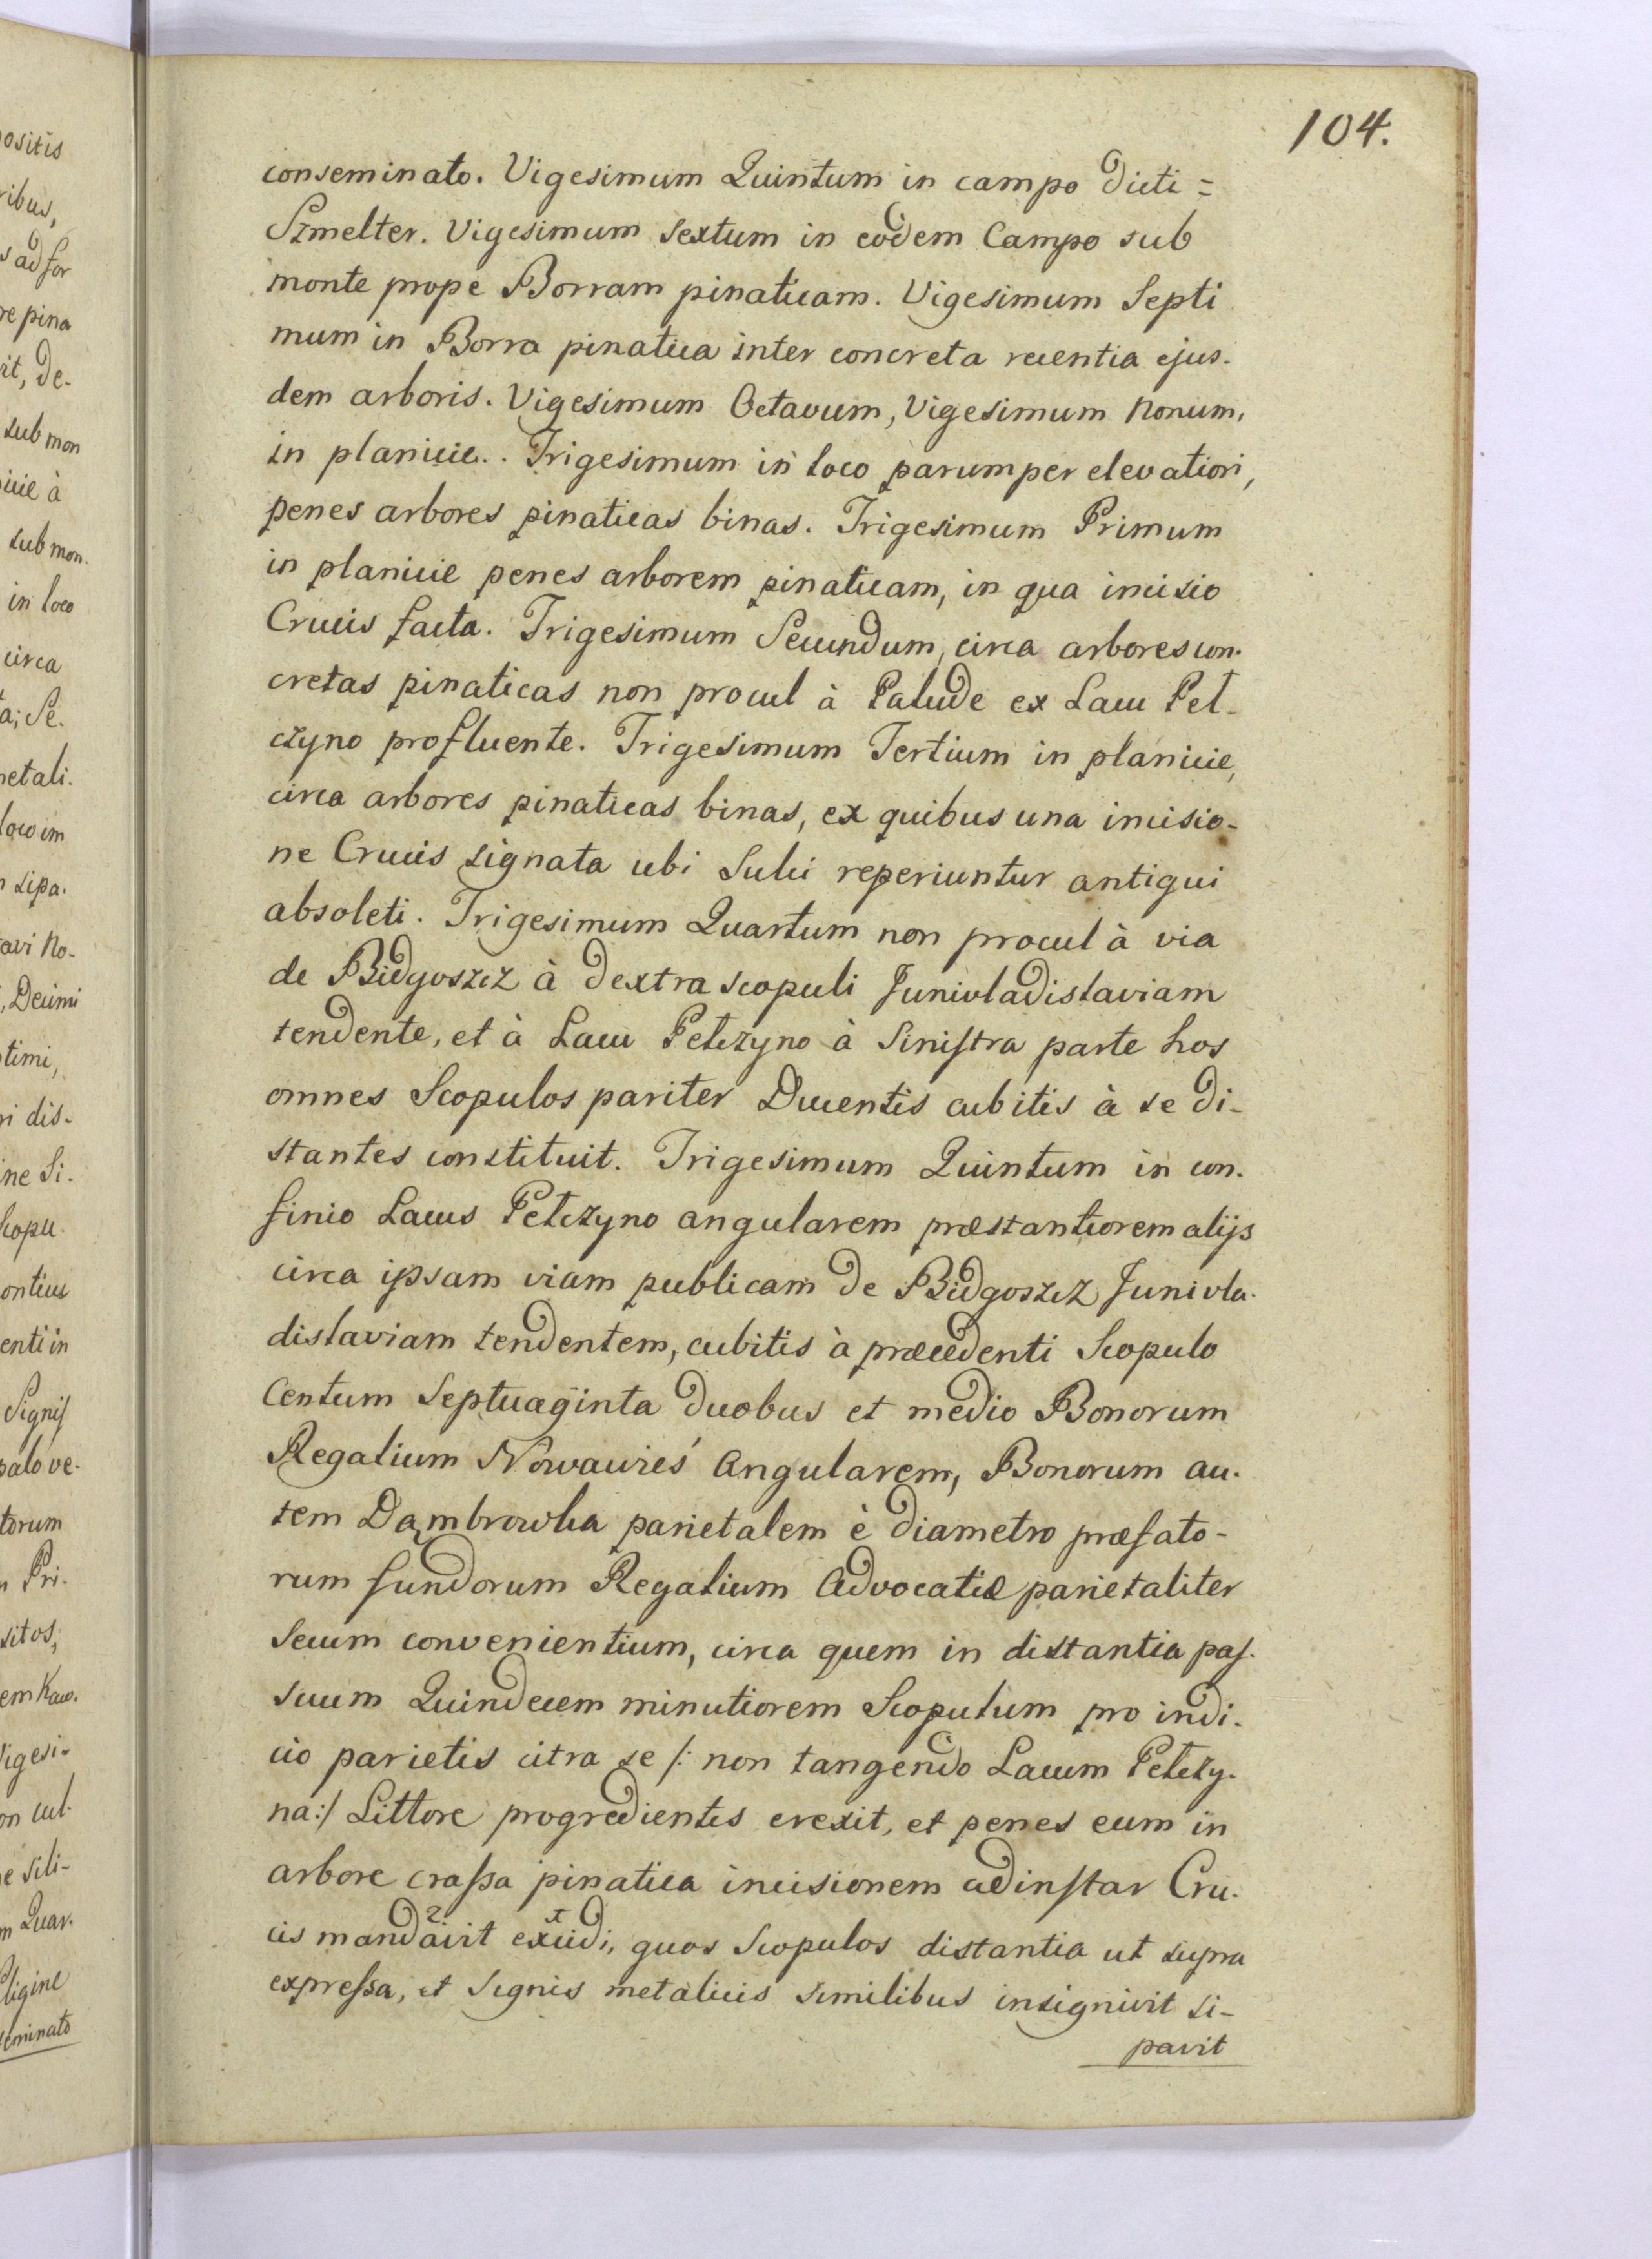 104.
conseminato. Vigesimum Quintum in campo dicti =
Szmelter. Vigesimum Sextum in eodem Campo sub
monte prope Borram pinaticam. Vigesimum Septi
mum in Borra pinatica inter concreta recentia ejus-
dem arboris. Vigesimum Octavum, Vigesimum Nonum,
in planicie.. Trigesimum in loco parumper elevatiori,
penes arbores pinaticas binas. Trigesimum Primum
in planicie penes arborem pinaticam, in qua incisio
Crucis facta. Trigesimum Secundum, circa arbores con-
cretas pinaticas non procul à Palude ex Lacu Pel-
czyno profluente. Trigesimum Tertium in planicie,
circa arbores pinaticas binas, ex quibus una incisio-
ne Crucis signata ubi Sulci reperiuntur antiqui
absoleti. Trigesimum Quartum non procul à via
de Bidgoszcz à dextra scopuli Junivladislaviam
tendente, et à Lacu Pelczyno à Sinistra parte hos
omnes Scopulos pariter Ducentis cubitis à se di-
stantes constituit. Trigesimum Quintum in con-
finio Lacus Pelczyno angularem præstantiorem alijs
circa ipsam viam publicam de Bidgoszcz Junivla-
dislaviam tendentem, cubitis à præcedenti Scopulo
Centum Septuaginta duobus et medio Bonorum
Regalium Nowawieś Angularem, Bonorum au-
tem Dąmbrowka parietalem è diametro præfato-
rum fundorum Regalium Advocatiæ parietaliter
secum convenientium, circa quem in distantia pas-
suum Quindecem minutiorem Scopulum pro indi-
cio parietis citra se /: non tangendo Lacum Pelczy-
na:/ Littore progredientis erexit, et penes eum in
arbore crassa pinatica incisionem adinstar Cru-
cis mandavit excidi, quos Scopulos distantia ut supra
expressa, et Signis metalicis similibus insignivit si-
pavit